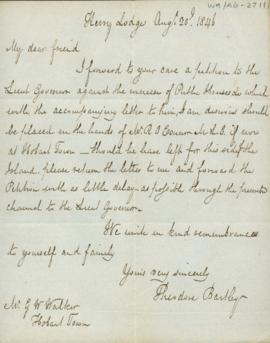 W9/A6-27(1)
Kerry Lodge Augt 20th 1846
My dear friend
I forward to your care a petition to the
Lieut Governor against the increase of Public Houses &c which
with the accompanying letter to him, I am desirous should
be placed in the hands of Mr R O Connor M.L.C. if now
at Hobart Town – Should he have left for this side of the
Island, please return the letter to me and forward the
Petition with as little delay as possible through the
channel to the Lieut Governor.
We unite in kind remembrances
to yourself and family
Yours very sincerely
Theodore Bartley
Mr G W Walker
Hobart Town